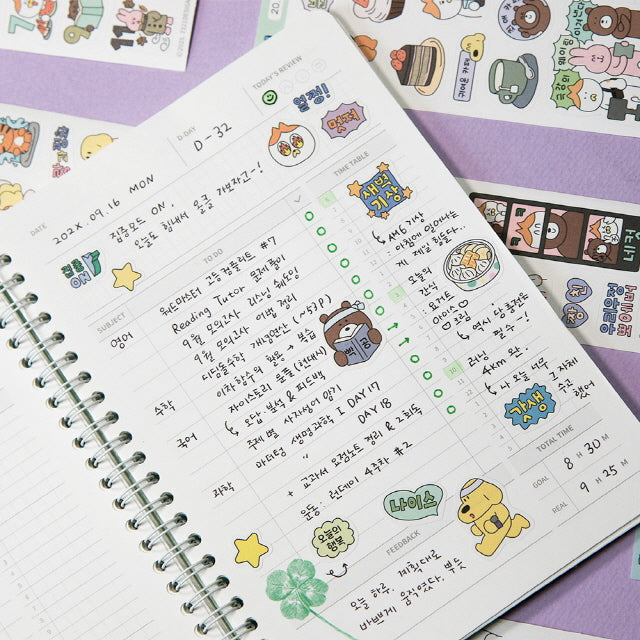 TODAY'S REVIEW
열정!
멋져
D.DAY
D-32
DATE
202X.09.16 MON
집중모드 ON,
오늘도 힘내서 열공 가보자고~!
TIME TABLE
새벽
기상
AM6 기상
: 아침에 일어나는
게 제일 힘들다..
오늘의
간식
요거트
아이스
크림
역시 당 충전은
필수~!
러닝
4km 완.
나 오늘 너무
갓생
그 자체
SUBJECT
TO DO
영어
워드마스터 고등 컴플리트 #7
Reading Tutor 문제풀이
9월 모의고사 리스닝 쉐도잉
9월 모의고사 어법 정리
수학
디딤돌수학 개념연산 (~53p)
이차함수의 활용 → 복습
국어
자이스토리 문풀 (현대시)
오답 분석 & 피드백
주제별 사자성어 암기
과학
마더텅 생명과학 I DAY 17
" DAY 18
+ 교과서 요점노트 정리 & 2회독
운동: 런데이 4주차 #2
TOTAL TIME
GOAL
8 H 30 M
REAL
9 H 25 M
나이스
오늘의
행복
FEEDBACK
오늘 하루, 계획대로
바쁘게 움직였다. 뿌듯
7
11
귀여운 카페